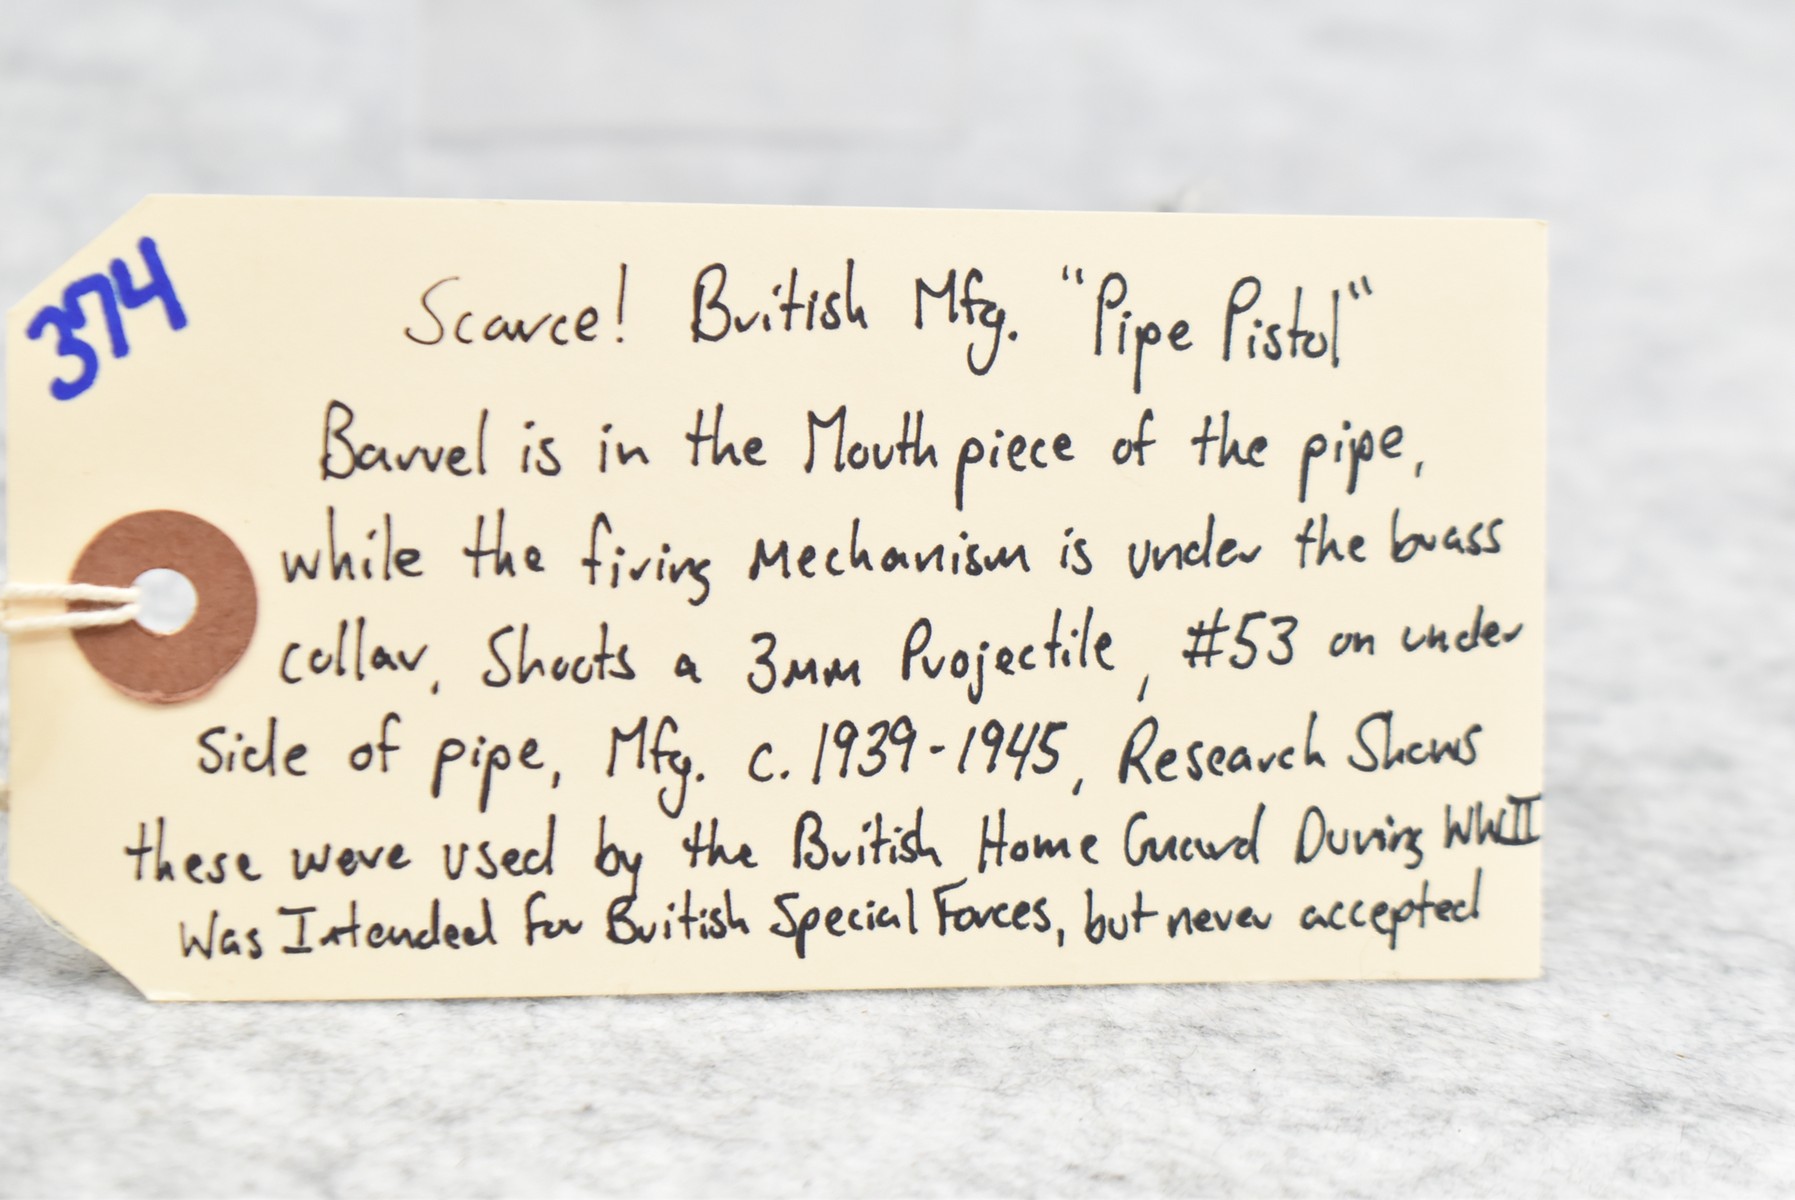 374
Scarce! British Mfg. "Pipe Pistol"
Barrel is in the Mouth piece of the pipe,
while the firing Mechanism is under the brass
collar, Shoots a 3mm Projectile, #53 on under
side of pipe, Mfg. c. 1939-1945, Research Shows
these were used by the British Home Guard During WWII
Was Intended for British Special Forces, but never accepted